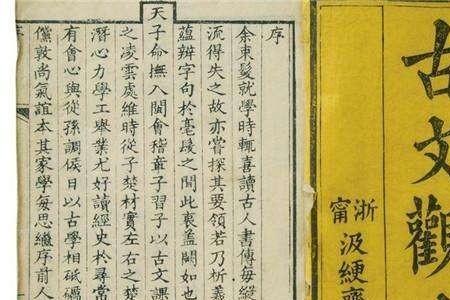 古文觀
浙甯
汲綆齋
序
余束髮就學時輒喜讀古人書傳每縱
流得失之故亦嘗探其要領若乃析義
蘊辨字句於毫髮之間此衷蓋闕如也
天子命撫八閩會稽章子習子以古文課
之凌雲處維時從子楚材實左右之楚
潛心力學工舉業尤好讀經史於尋常
有會心與從孫調侯日以古學相砥礪
儻敦尚氣誼本其家學每思繼序前人